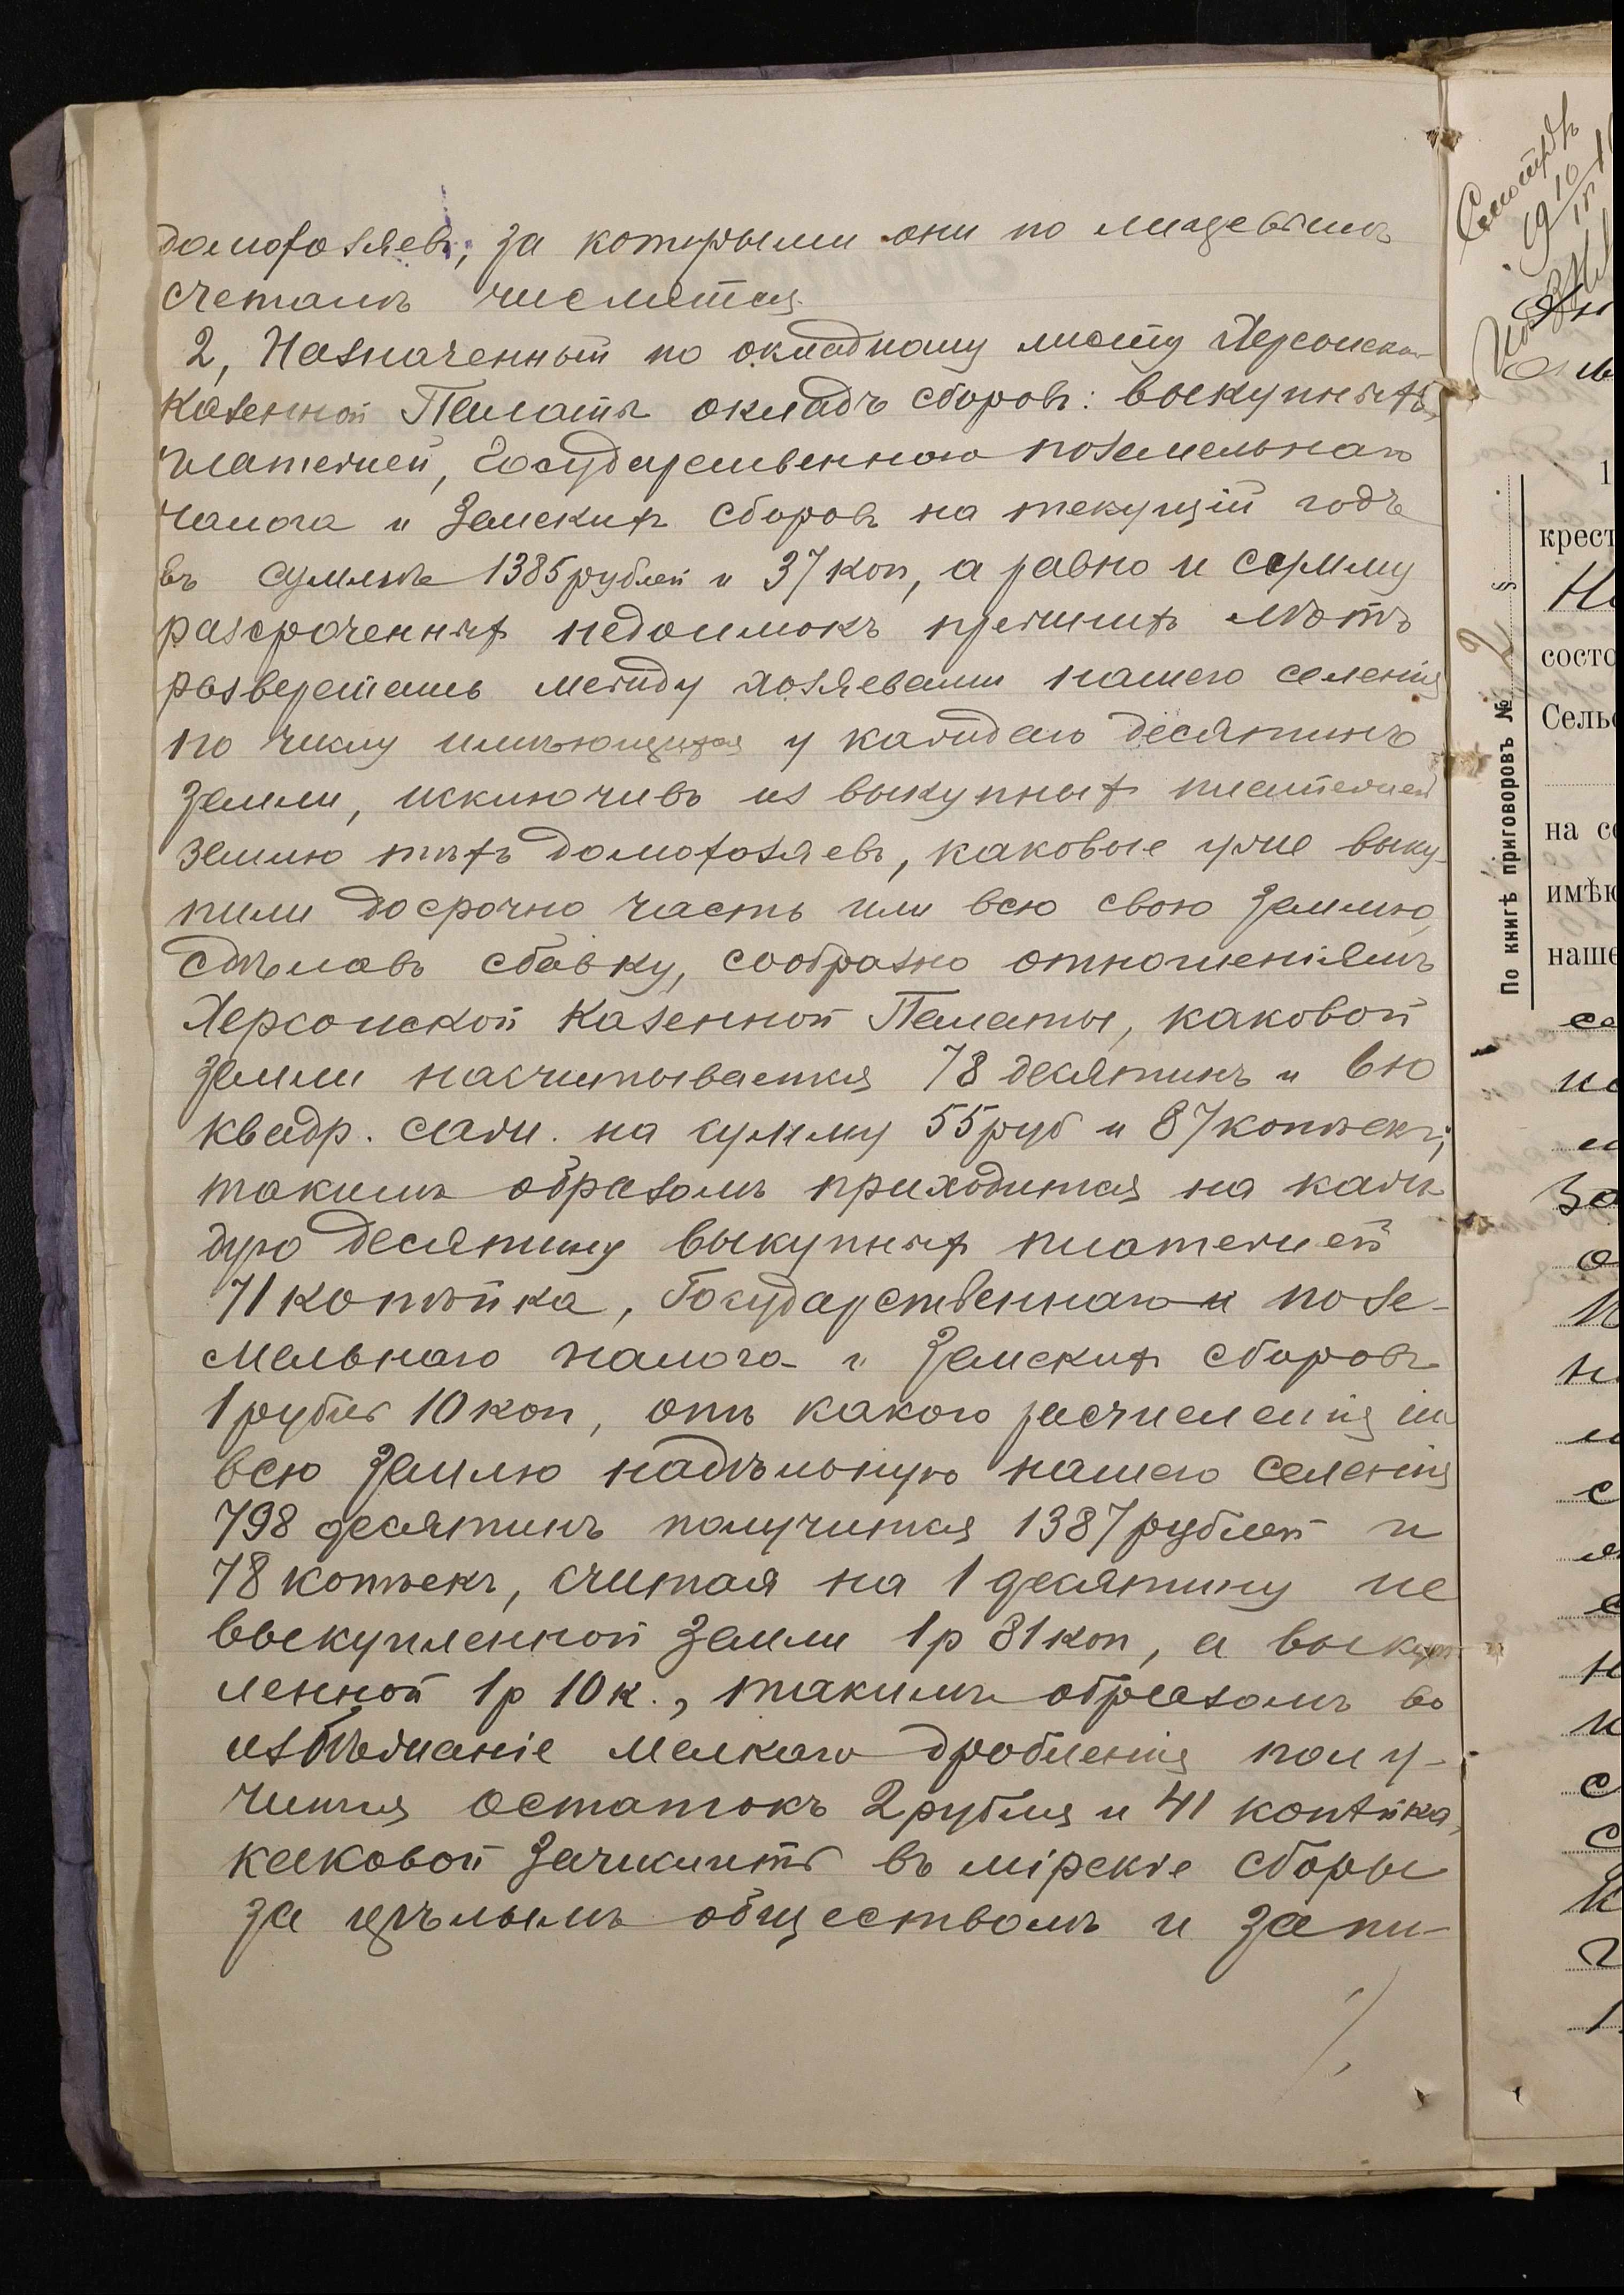 домохозяевъ, за которыми они по лицевымъ
счетамъ числятся.
2, Назначенный по окладному листу Херсонской
Казенной Палаты окладъ сборовъ: выкупныхъ
платежей, Государственного поземельнаго
налога и Земскихъ сборовъ на текущій годъ
въ суммѣ 1385 рублей и 37 коп, а равно и сумму
разсроченныхъ недоимокъ прежнихъ лѣтъ
разверстать между хозяевами нашего селенія
по числу имѣющихся у каждаго десятинъ
земли, исключивъ из выкупныхъ платежей
землю тѣхъ домохозяевъ, каковые уже выку-
пили досрочно часть или всю свою землю,
сдѣлавъ сбавку, сообразно отношеніямъ
Херсонской Казенной Палаты, каковой
земли насчитывается 78 десятинъ и
квадр. саж. на сумму 55 руб и 87 копѣекъ;
такимъ образомъ приходится на каж-
дую десятину выкупныхъ платежей
71 копѣйка, Государственнаго и позе-
мельнаго налога и Земскихъ сборовъ
1 рубль 10 коп, отъ какого расчисленія на
всю землю надѣльную нашего селенія
798 десятинъ получится 1387 рублей и
78 копѣекъ, считая на 1 десятину не
выкупленной земли 1 р 81 коп, а выкуп-
ленной 1 р 10 к., такимъ образомъ во
избѣжаніе мелкаго дробленія полу-
чится остатокъ 2 рубля и 41 копѣйка,
каковой зачислить въ мірскіе сборы
за цѣлымъ обществомъ и запи-
По книгѣ приговоровъ № 2 §
1
крест
состо
Сельс
на со
имѣю
наше